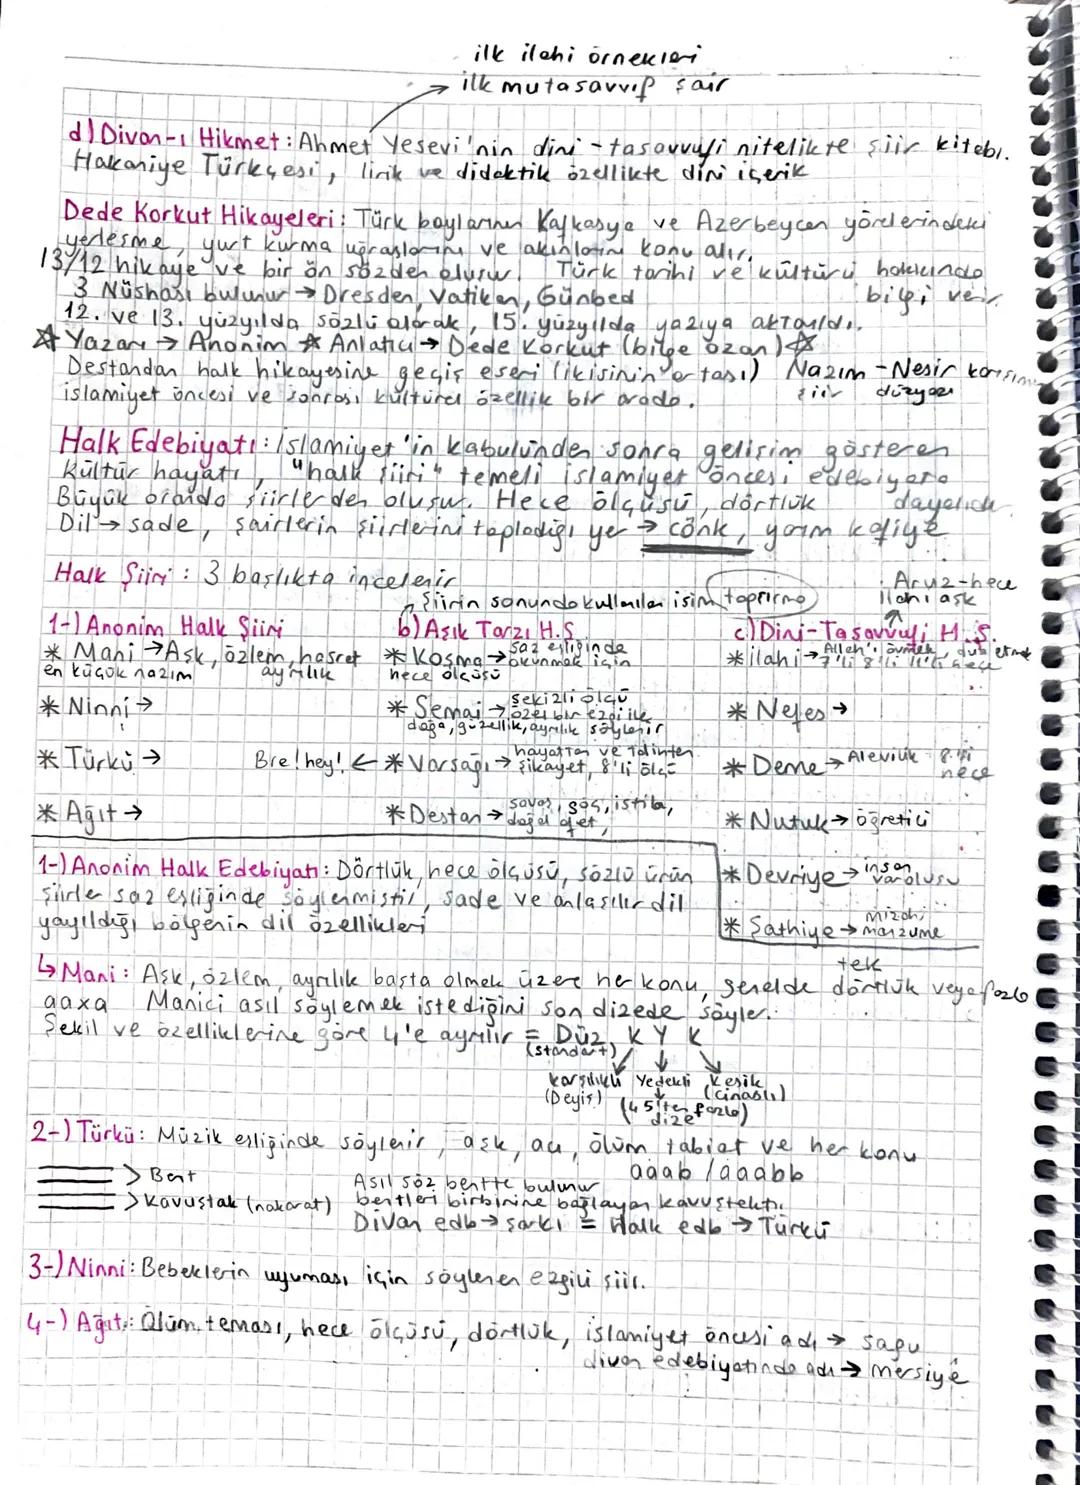 ilk ilahi örnekleri
ilk mutasavvıf şair
d) Divan-ı Hikmet: Ahmet Yesevi'nin dini-tasavvufi nitelikte şiir kitabı.
Hakaniye Türkçesi, lirik ve didaktik özellikte dini içerik
Dede Korkut Hikayeleri: Türk boylarının Kafkasya ve Azerbeycan yörelerindeki
yerleşme, yurt kurma uğraşlarını ve akınlarını konu alır.
13/12 hikaye ve bir ön sözden oluşur. Türk tarihi ve kültürü hakkında
bilgi verir.
3 Nüshası bulunur → Dresden, Vatikan, Günbed
12. ve 13. yüzyılda sözlü olarak, 15. yüzyılda yazıya aktarıldı.
☆ Yazarı → Anonim ☆ Anlatıcı → Dede Korkut (bilge ozan) ☆
Destandan halk hikayesine geçiş eseri (ikisinin ortası) Nazım - Nesir karışımı
şiir düzyazı
islamiyet öncesi ve sonrası kültürel özellik bir arada.
Halk Edebiyatı: İslamiyet'in kabulünden sonra gelişim gösteren
kültür hayatı, "halk şiiri" temeli islamiyet öncesi edebiyata
dayalıdır.
Büyük oranda şiirlerden oluşur. Hece ölçüsü, dörtlük
Dil → sade, şairlerin şiirlerini topladığı yer → cönk, yarım kafiye
Halk Şiiri: 3 başlıkta incelenir
Şiirin sonunda kullanılan isim tapşırma
Aruz-hece
ilahi aşk
1-) Anonim Halk Şiiri
b) Aşık Tarzı H.Ş.
c) Dini-Tasavvufi H.Ş.
* Mani → Aşk, özlem, hasret
en küçük nazım ayrılık
* Koşma → saz eşliğinde
okunmak için
hece ölçüsü
* ilahi → Allah'ı övmek, dua etmek
7'li 8'li 11'li hece
* Ninni →
* Semai → sekizli ölçü
özel bir ezgi ile
doğa, güzellik, ayrılık söylenir
* Nefes →
* Türkü →
Bre! hey! ← * Varsağı → hayattan ve talihten
şikayet, 8'li ölçü
* Deme → Alevilik 8'li
hece
* Ağıt →
* Destan → savaş, göç, istila,
doğal afet,
* Nutuk → öğretici
1-) Anonim Halk Edebiyatı: Dörtlük, hece ölçüsü, sözlü ürün
şiirler saz eşliğinde söylenmiştir, sade ve anlaşılır dil
yayıldığı bölgenin dil özellikleri
* Devriye → insan
varoluşu
* Şathiye → mizahi
manzume
↳ Mani: Aşk, özlem, ayrılık başta olmak üzere her konu, genelde tek dörtlük veya fazla
aaxa Manici asıl söylemek istediğini son dizede söyler.
Şekil ve özelliklerine göre 4'e ayrılır = Düz, K Y K
(standart)
karşılıklı Yedekli Kesik
(Deyiş) (cinaslı)
(4 5'ten fazla)
dize
2-) Türkü: Müzik eşliğinde söylenir, aşk, acı, ölüm, tabiat ve her konu
aaab / aaabb
> Bent
> Kavuştak (nakarat)
Asıl söz bentte bulunur
bentleri birbirine bağlayan kavuştaktı.
Divan edb → şarkı = Halk edb → Türkü
3-) Ninni: Bebeklerin uyuması için söylenen ezgili şiir.
4-) Ağıt: Ölüm teması, hece ölçüsü, dörtlük, islamiyet öncesi adı → sagu
divan edebiyatında adı → mersiye